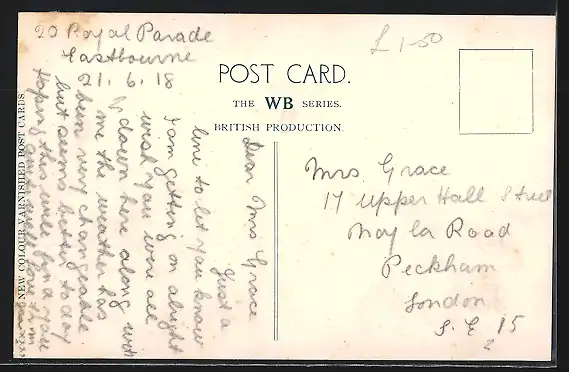 20 Royal Parade
Eastbourne
21. 6. 18
£1-50
POST CARD.
THE WB SERIES.
BRITISH PRODUCTION.
Dear Mrs Grace
Just a
line to let you know
I am getting on alright
wish you were all
down here along with
me the weather has
been very changeable
but seems better today
hoping this will find you
all quite well
Mrs. Grace
17 Upper Hall Street
Road
Peckham
London
S. E. 15
NEW COLOUR VARNISHED POST CARDS